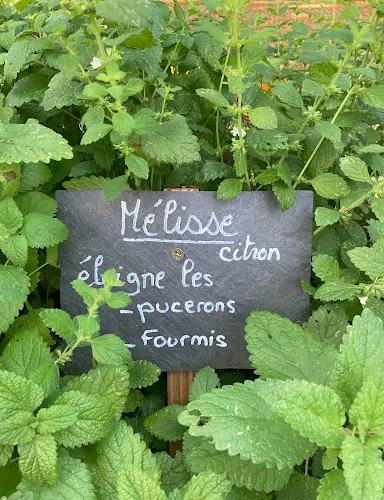 Mélisse
citron
éloigne les
-pucerons
-fourmis